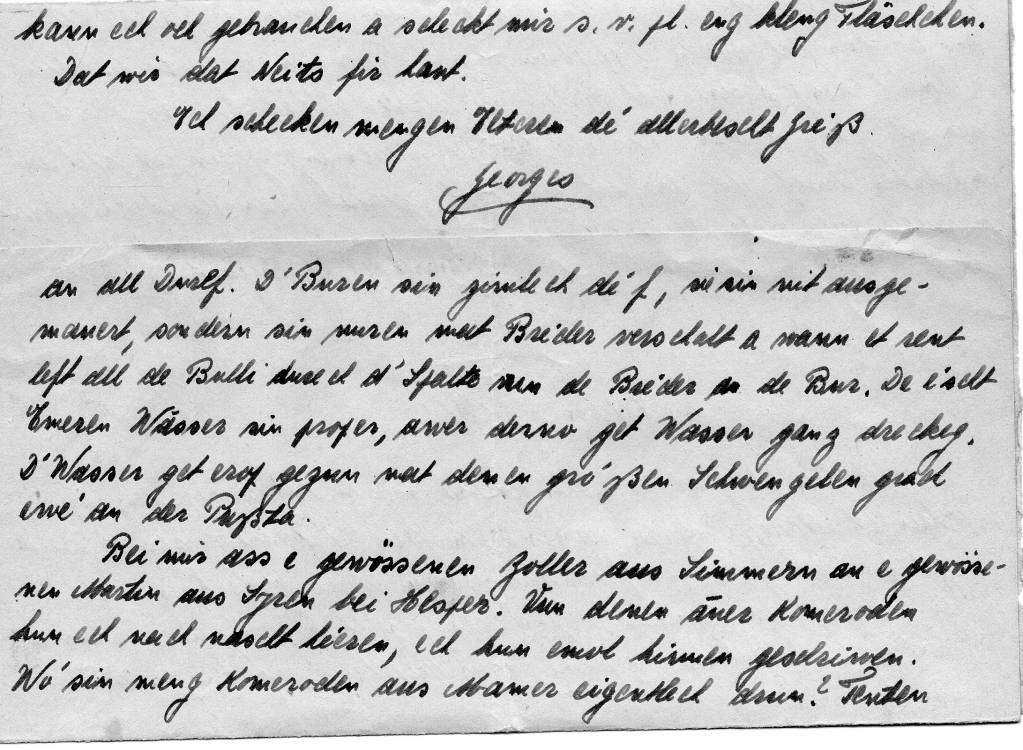 kann ech vel gebrauchen a scheckt mir s. v. pl. eng kleng Fläschchen.
Dat wir dat Neits fir haut.
Ech schecken mengen Elteren dé allerbescht Gréiß.
Georges
an all Duerf. D'Buren sin zimlech déf, si sin nit ausge-
mauert, sondern sin nuren mat Brieder verschalt a wann et rent
left all de Bulli durech d'Spalte vun de Brieder an de Bur. De éischt
Emeren Wässer sin proper, awer derno get Wasser ganz dreckeg.
D'Wasser get erof gezun mat denen gréißen Schwengelen grad
ewé an der Pußta.
Bei mir ass e gewössenen Zoller aus Simmern an e gewösse-
nen Martin aus Syren bei Hesper. Vun denen äner Komeroden
hun ech nach nascht héieren, ech hun emol hinnen geschriwen.
Wó sin meng Komeroden aus Mamer eigentlech drun?